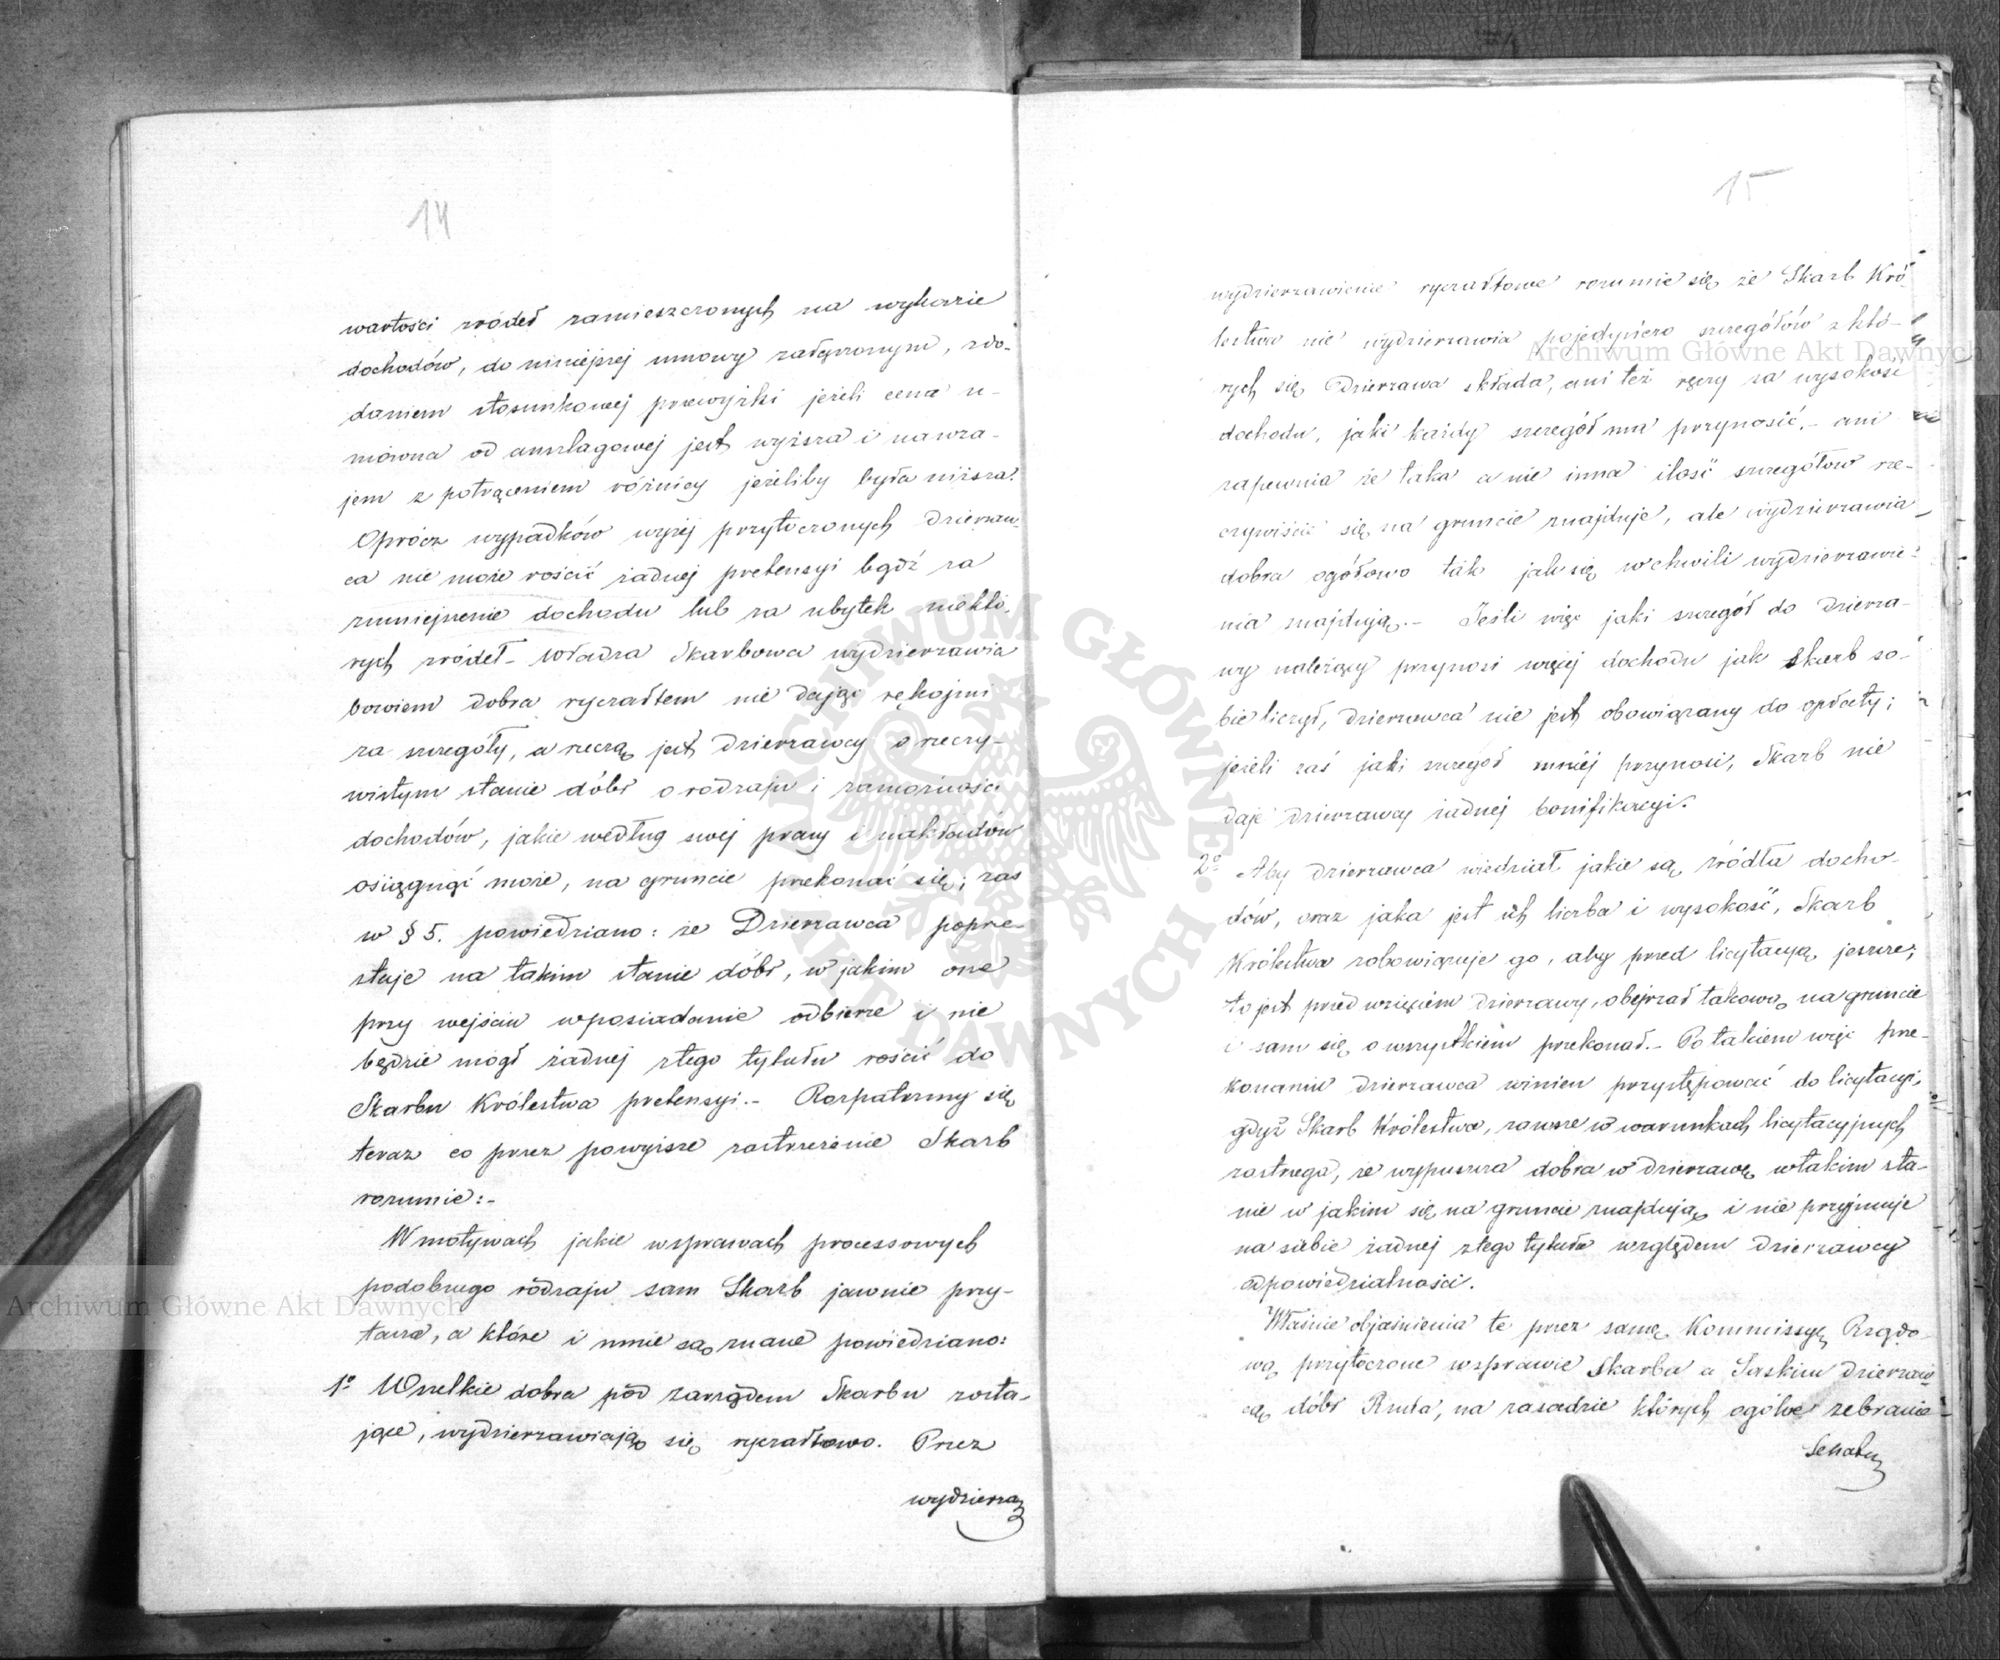 14
wartości zródeł zamieszczonych na wykazie
dochodów, do niniejszej umowy załączonym, z do-
daniem stosunkowej przewyżki jeżeli cena u-
mówna od anszlagowej jest wyższa i nawza-
jem z potrąceniem różnicy jeżeliby była niższa.
Oprócz wypadków wyżej przytoczonych Dzierzaw-
ca nie może rościć żadnej pretensyi bądź za
zmniejszenie dochodu lub za ubytek niektó-
rych zródeł – Władza Skarbowa wydzierzawia
bowiem dobra ryczałtem nie dając rękojmi
za szczegóły, a rzeczą jest Dzierzawcy o rzeczy-
wistym stanie dóbr o rodzaju i zamożności
dochodów, jakie według swej pracy i nakładów
osiągnąć może, na gruncie przekonać się; zaś
w § 5. powiedziano: że Dzierzawca poprze-
staje na takim stanie dóbr, w jakim one
przy wejściu w posiadanie odbierze i nie
będzie mógł żadnej z tego tytułu rościć do
Skarbu Królestwa pretensyi. – Rozpatrzmy się
teraz co przez powyższe zastrzeżenie Skarb
rozumie: –
W motywach jakie w sprawach processowych
podobnego rodzaju sam Skarb jawnie przy-
tacza, a które i mnie są znane powiedziano:
1º Wszelkie dobra pod zarządem Skarbu zosta-
jące, wydzierzawiają się ryczałtowo. Przez
wydzierza
15
wydzierzawienie ryczałtowe rozumie się że Skarb Kró-
lestwa nie wydzierzawia pojedynczo szczegółów z któ-
rych się Dzierzawa składa, ani też ręczy za wysokość
dochodu, jaki każdy szczegół ma przynosić, – ani
zapewnia że taka a nie inna ilość szczegółów rze-
czywiście się na gruncie znajduje, ale wydzierzawia
dobra ogółowo tak jak się w chwili wydzierzawie-
nia znajdują. – Jeśli więc jaki szczegół do Dzierza-
wy należący przynosi więcej dochodu jak Skarb so-
bie liczył, Dzierzawca nie jest obowiązany do opłaty;
jeżeli zaś jaki szczegół mniej przynosi, Skarb nie
daje Dzierzawcy żadnej bonifikacyi.
2º Aby Dzierzawca wiedział jakie są źródła docho-
dów, oraz jaka jest ich liczba i wysokość, Skarb
Królestwa zobowiązuje go, aby przed licytacyą jeszcze,
to jest przed wzięciem Dzierzawy, obejrzał takową na gruncie
i sam się o wszystkiem przekonał. – Po takiem więc prze-
konaniu Dzierzawca winien przystępować do licytacyi,
gdyż Skarb Królestwa, zawsze w warunkach licytacyjnych
zastrzega, że wypuszcza dobra w Dzierzawę w takim sta-
nie w jakim się na gruncie znajdują i nie przyjmuje
na siebie żadnej z tego tytułu względem Dzierzawcy
odpowiedzialności.
Właśnie objaśnienia te przez samę Kommissyę Rządo-
wą przytoczone w sprawie Skarbu a Saskim Dzierzaw-
cą dóbr Ruda, na zasadzie których ogólne zebranie
Senatu
Archiwum Główne Akt Dawnych
Archiwum Główne Akt Dawnych
ARCHIWUM GŁÓWNE AKT DAWNYCH